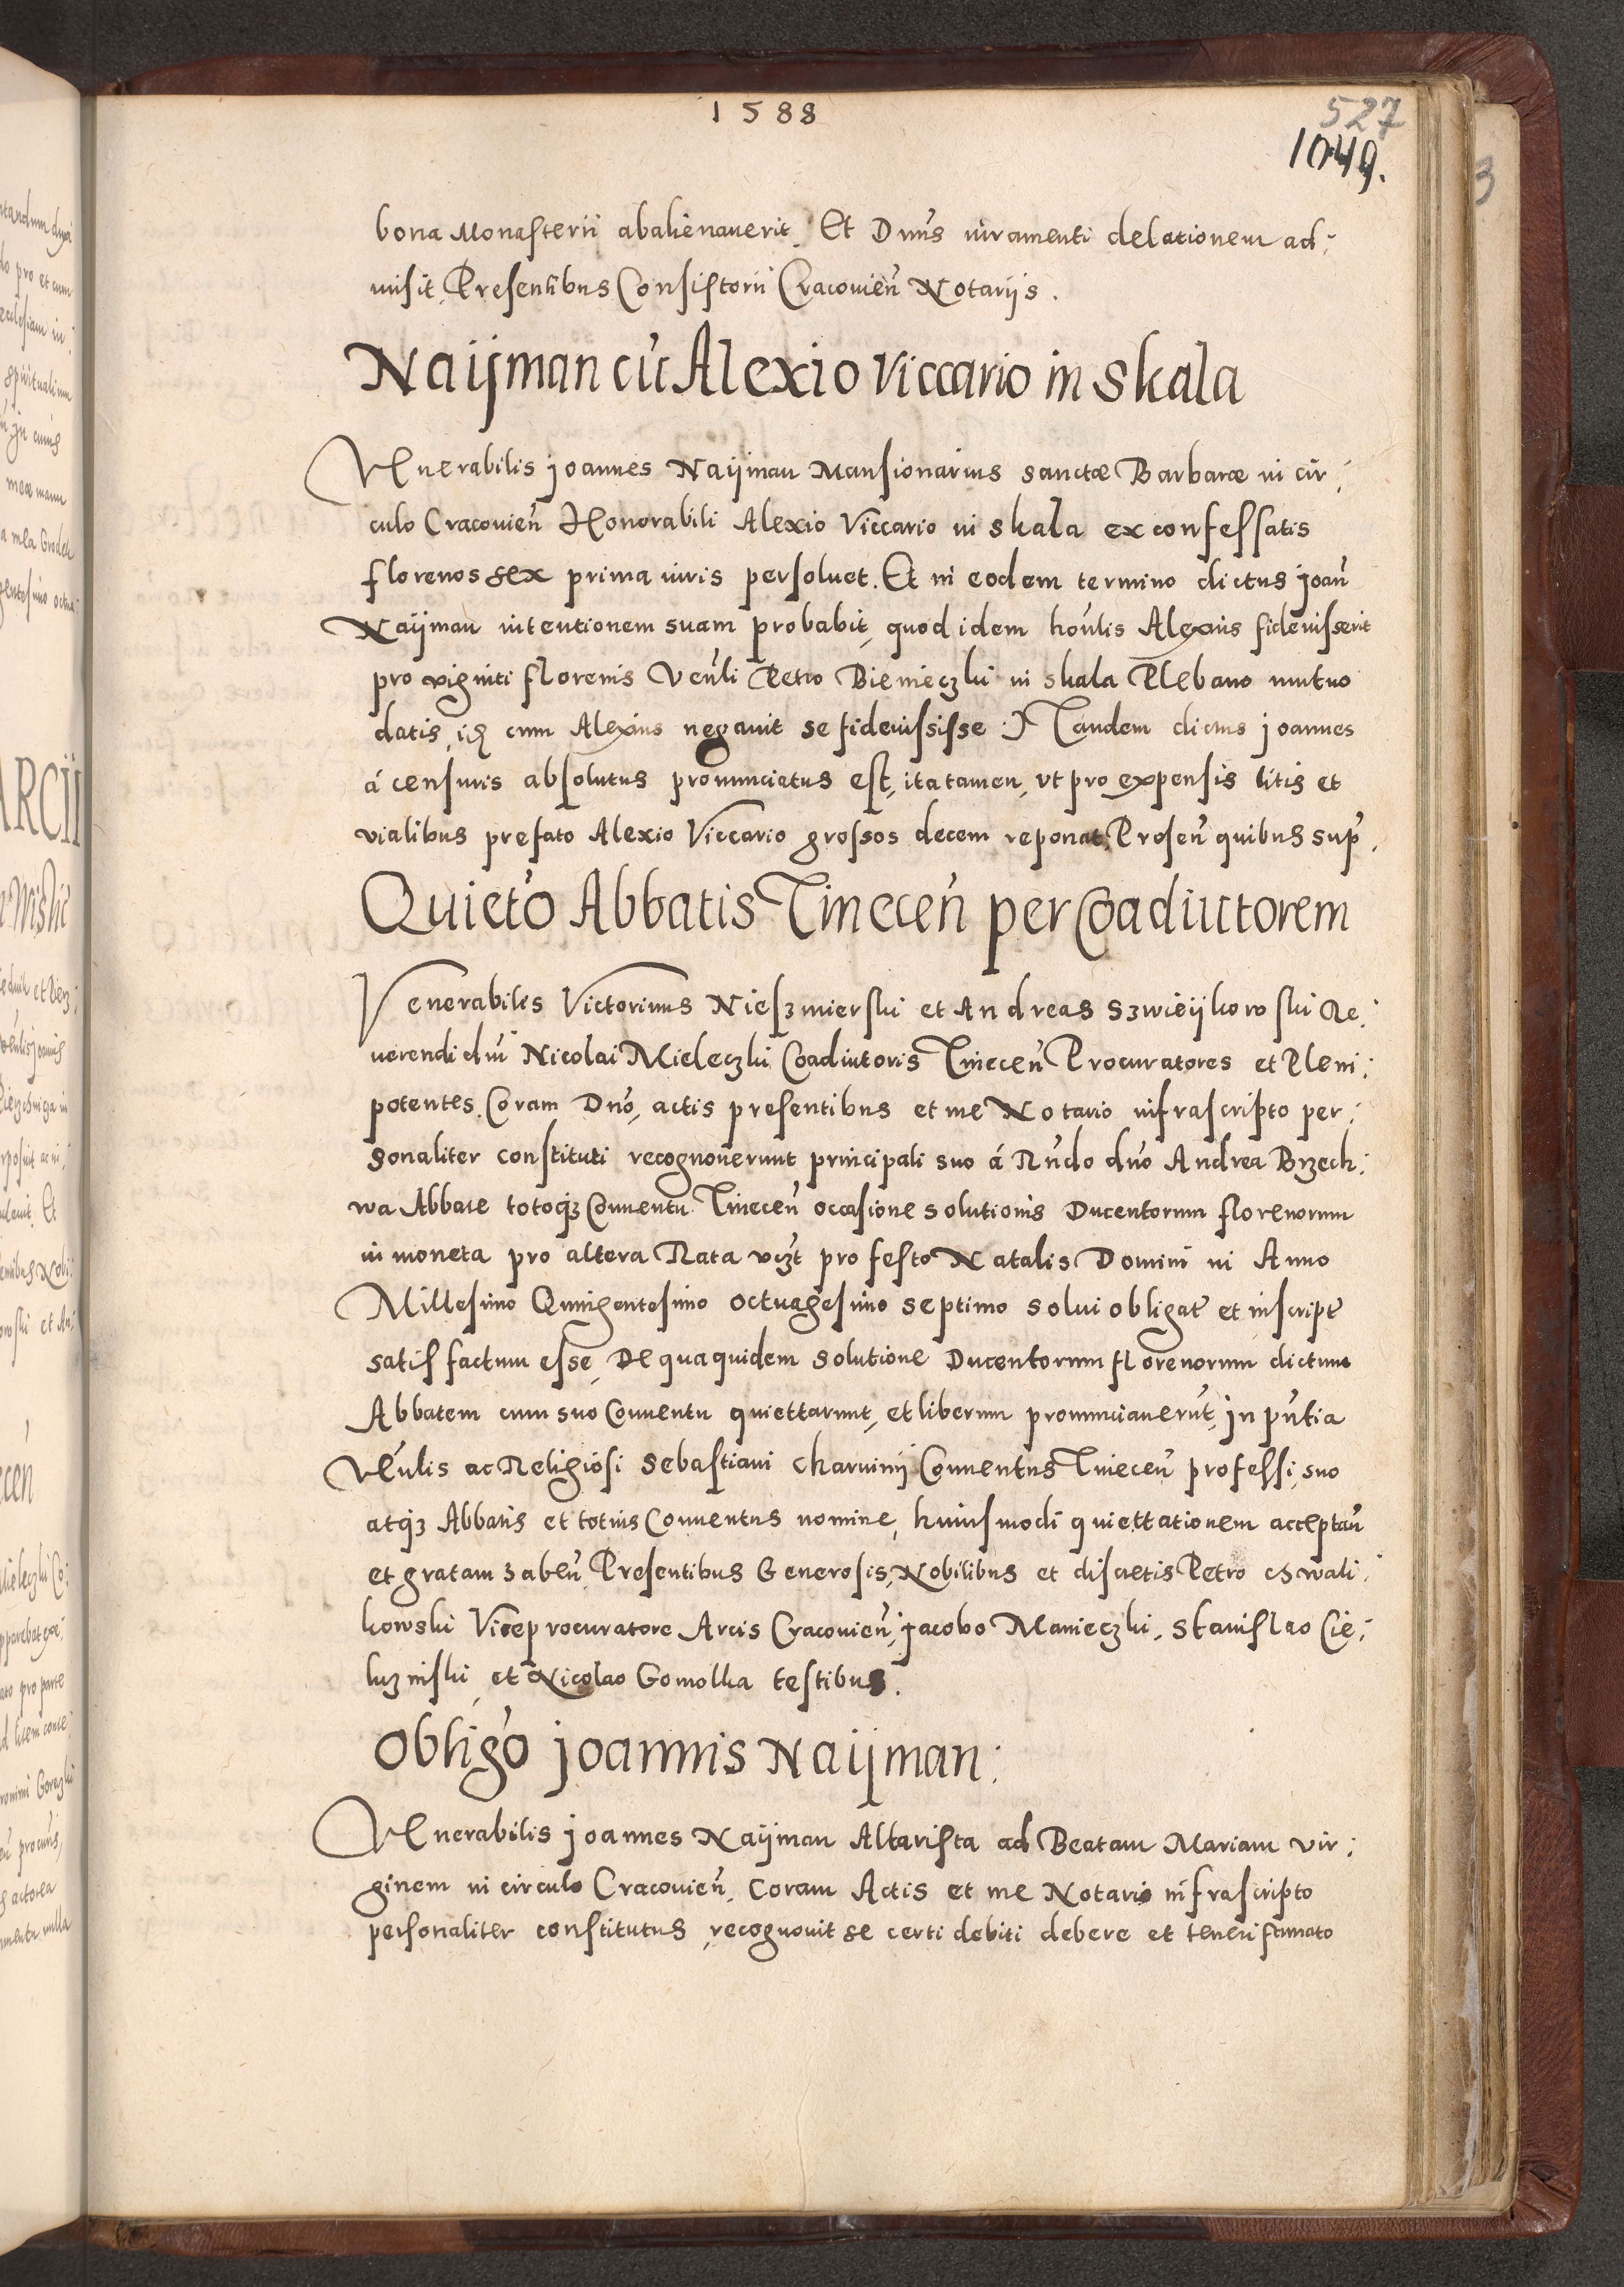 1588
527
1049.
bona Monasterii abalienauerit. Et Dnus iuramenti delationem ad:
misit, Presentibus Consistorii Cracouien Notariis.
Naijman cu Alexio Viccario in Skala
Venerabilis Joannes Naijman Mansionarius sanctæ Barbaræ in cir:
culo Cracouien Honorabili Alexio Viccario in Skala ex confessatis
florenos sex prima iuris persoluet. Et in eodem termino dictus Joan
Naijman intentionem suam probabit, quod idem honlis Alexius fideiusserit
pro viginti florenis Venli Petro Bienieczki in Skala Plebano mutuo
datis, cum Alexius negauit se fideiussisse Tandem dictus Joannes
á censuris absolutus pronunciatus est, ita tamen, vt pro expensis litis et
vialibus prefato Alexio Viccario grossos decem reponat, Presen quibus sup.
Quieto Abbatis Tinecen per Coadiutorem
Venerabiles Victorinus Nieszmierski et Andreas Szwieijkowski Re:
uerendi dni Nicolai Mieleczki Coadiutoris Tinecen Procuratores et Pleni:
potentes. Coram Dno, actis presentibus et me Notario infrascripto per:
sonaliter constituti recognouerunt principali suo á Rndo dno Andrea Brzech:
wa Abbate totoqz Conuentu Tinecen occasione solutionis Ducentorum florenorum
in moneta pro altera Rata vizt pro festo Natalis Domini in Anno
Millesimo Quingentesimo octuagesimo septimo solui obligat et inscript
satisfactum esse, De qua quidem solutione Ducentorum florenorum dictum
Abbatem cum suo Conuentu quiettarunt, et liberum pronunciauerut, in pntia
Venlis ac Religiosi Sebastiani Charvinij Conuentus Tinecen professi, suo
atqz Abbatis et totius Conuentus nomine, huiusmodi quiettationem acceptan
et gratam haben, Presentibus Generosis, Nobilibus et discretis Petro Chwali:
kowski Viceprocuratore Arcis Cracouien, Jacobo Manieczki, Stanislao Cie:
luzniski, et Nicolao Gomolka testibus.
Obligo Joannis Naijman:
Venerabilis Joannes Naijman Altarista ad Beatam Mariam vir:
ginem in circulo Cracouien, Coram Actis et me Notario infrascripto
personaliter constitutus, recognouit se certi debiti debere et teneri famato